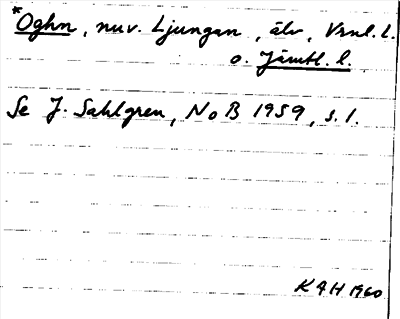 *Oghn, nuv. Ljungan, älv, Vrnl. l.
o. Jämtl. l.
Se J. Sahlgren, NoB 1959, s. 1.
K G H 1960